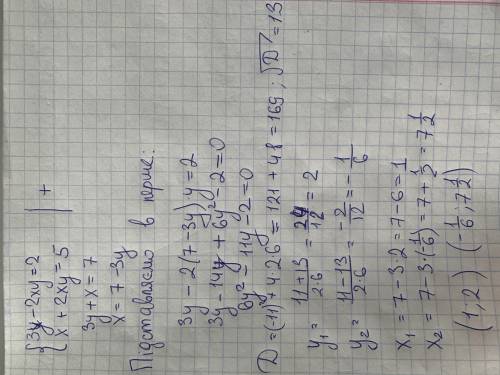 {3y - 2xy = 2 | +
x + 2xy = 5
3y + x = 7
x = 7 - 3y
Підставляємо в перше:
3y - 2(7 - 3y)y = 2
3y - 14y + 6y² - 2 = 0
6y² - 11y - 2 = 0
D = (-11)² + 4·2·6 = 121 + 48 = 169; √D = 13
y₁ = (11+13)/(2·6) = 24/12 = 2
y₂ = (11-13)/(2·6) = -2/12 = -1/6
x₁ = 7 - 3·2 = 7 - 6 = 1
x₂ = 7 - 3·(-1/6) = 7 + 1/2 = 7 1/2
(1; 2) (-1/6, 7 1/2)